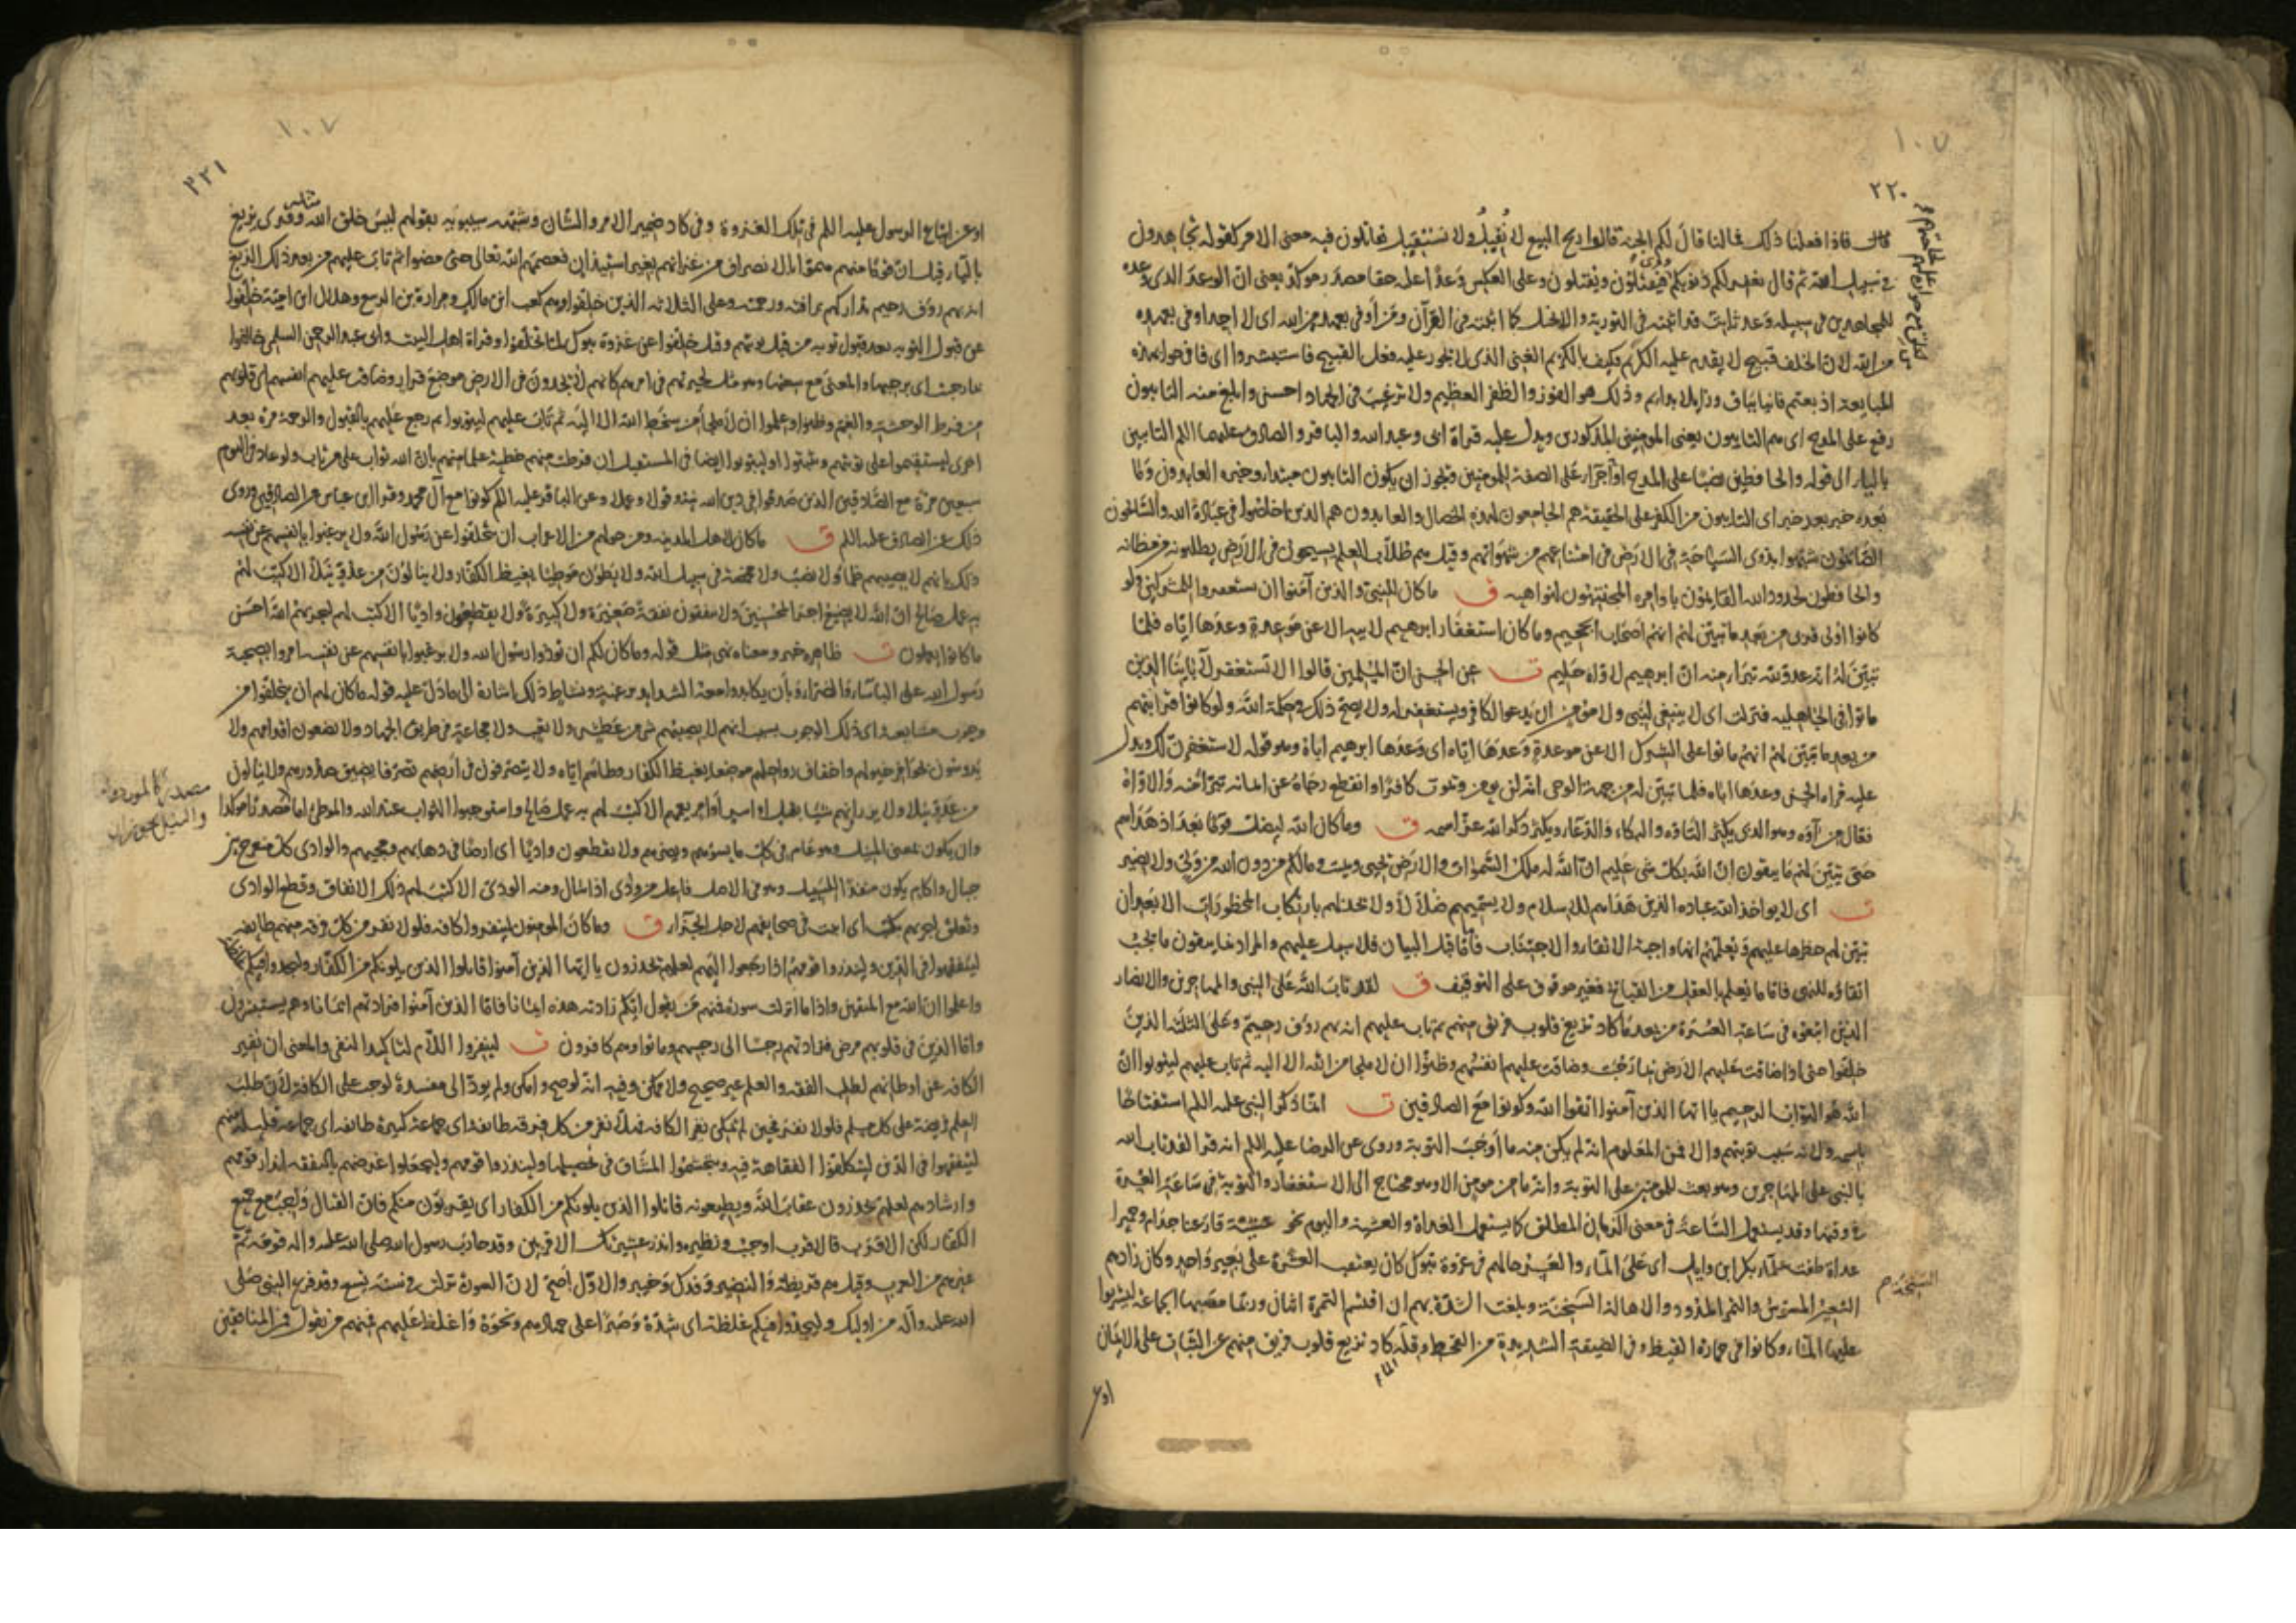 ٢٢٠
قال فاذا فعلنا ذلك فما لنا قال لكم الجنة قالوا ربح البيع لا نُقِيلُ ولا نستقيل يقاتلون فيه معنى الامر كقوله تجاهدون
في سبيل الله ثم قال يغفر لكم ذنوبكم فيَقتُلون ويُقتلون وعلى العكس وَعدًا عليه حقا مصدر موكد يعنى انّ الوعد الذى وعده
للمجاهدين فى سبيله وعد ثابت قد اثبته فى التورية والانجيل كما اثبته فى القرآن ومَن اَوفى بعهده من الله اى لا احد اوفى بعهده
من الله لان الخلف قبيح لا يقدم عليه الكرام فكيف بالكريم الغنى الذى لا يجوز عليه فعل القبيح فاستبشروا اى فافرحوا بهذه
المبايعة اذ بعتم فانيا بباق وزايلا بدايم وذلك هو الفوز والظفر العظيم ولا ترغيب فى الجهاد احسن وابلغ منه التايبون
رفع على المدح اى هم التايبون يعنى المومنين المذكورين ويدل عليه قراة ابى وعبد الله والباقر والصادق عليهما اللم التايبين
بالياء الى قوله والحافظين نصبا على المدح او جَرّا على الصفة للمومنين ويجوز ان يكون التايبون مبتدا وخبره العابدون وما
بعده خبر بعد خبر اى التايبون من الكفر على الحقيقة هم الجامعون لهذه الخصال والعابدون هم الذين اخلصوا فى عبادة الله والسّائحون
الصّائمون شبهوا بذوى السّياحة فى الارض فى امتناعهم من شهواتهم وقيل هم طلّاب العلم يسيحون فى الارض يطلبونه من مظانه
والحافظون لحدود الله القايمون باوامره المجتنبون لنواهيه ق ما كان للنبىّ والذين آمنوا ان يستغفروا للمشركين ولو
كانوا اولى قربى من بعد ما تبيّن لهم انهم اصحاب الجحيم وما كان استغفار ابرهيم لابيه الا عن موعدة وعدها ايّاه فلمّا
تبيّن لهُ انه عدو لله تبرّا منه انّ ابرهيم لاوّاه حليم ت عن الحسن انّ المسلمين قالوا الا نستغفر لآبائنا الذين
ماتوا فى الجاهلية فنزلت اى لا ينبغى لنبى ولا مؤمن ان يدعوا لكافر ويستغفر له ولا يصح ذلك فى حكمة الله ولو كانوا قرابتهم
من بعد ما تبيّن لهم انهم ماتوا على الشرك الا عن موعدةٍ وَعَدَهَا ايّاه اى وَعدَها ابرهيم اباه وهو قوله لاستغفرن لك ويدل
عليه قراة الحسن وعدها اباه فلما تبيّن له من جهة الوحى انه لن يومن وتموت كافرا وانقطع رجاؤه عن ايمانه تبرّا منه والاوّاه
فعّال من اَوّه وهو الذى يكثر التاوّه والبكاء والدّعاء ويكثر ذكر الله عزّ اسمه ق وما كان الله ليضلّ قومًا بعد اذ هداهم
حتى يبيّن لهم ما يتقون انّ الله بكلّ شى عليم انّ الله له ملك السّموات والارض يحيى ويميت وما لكم من دون الله من ولىّ ولا نصير
ت اى لا يواخذ الله عباده الذين هداهم للاسلام ولا يسمّيهم ضلّالًا ولا يخذلهم بارتكاب المحظورات الا بعد ان
يبيّن لهم حظرها عليهم ويعلّمهم انها واجبة الاتقاء والاجتناب فامّا قبل البيان فلا سبيل عليهم والمراد بما يتقون ما يجب
اتقاؤه للنهى فامّا ما يُعلم بالعقل من القبائح فغير موقوف على التوقيف ق لقد تاب الله على النبى والمهاجرين والانصار
الذين اتبعوه فى ساعة العسرة من بعد ما كاد تزيغ قلوب فريق منهم ثم تاب عليهم انه بهم روف رحيم وعلى الثلثة الذين
خلّفوا حتى اذا ضاقت عليهم الارض بما رحُبت وضاقت عليهم انفسُهم وظنّوا ان لا ملجا من الله الا اليه ثم تاب عليهم ليتوبوا انّ
الله هو التوّاب الرحيم يا ايّها الذين آمنوا اتقوا الله وكونوا مع الصادقين ت انما ذكر النبى عليه اللم استفتاحًا
باسمه ولانه سبب توبتهم والا فمن المعلوم انه لم يكن منه ما اوجب التوبة وروى عن الرضا عليه اللم انه قرا لقد تاب الله
بالنبى على المهاجرين وهو بعث للمومنين على التوبة وانه ما من مومن الا وهو محتاج الى الاستغفار والتوبة فى ساعة العسرة
فى وقتها وقد يستعمل السّاعة فى معنى الزمان المطلق كما يستعمل الغداة والعشية واليوم نحو عشيّة قارعنا جذام وحميرا
غداة طفت علماء بكر ابن وايل اى على الماء والعسر حالهم فى غزوة تبوك كان يعتقب العشرة على بعير واحد وكان زادهم
الشعير المسوس والتمر المدوّد والاهالة السنخة وبلغت الشدّة بهم ان اقتسم التمرة اثنان وربما مصّها الجماعة ليشربوا
عليها الماء وكانوا فى حمارّة القيظ وفى الضيقة الشديدة من القحط وقلّه كاد تزيغ قلوب فريق منهم عن الثبات على الايمان
الماء
السنخة م
او
٢٢١
او عن اتباع الرسول عليه اللم فى تلك الغزوة وفى كاد ضمير الامر والشان وشبّهه سيبويه بقولهم ليسَ خلق الله مثله وقرى يزيغ
بالياء وقيل انّ قومًا منهم همّوا بالانصراف من غزاتهم بغير استيذان فعصمهم الله تعالى حتى مضوا ثم تاب عليهم من بعد ذلك الزيغ
انه بهم روف رحيم تداركهم برافته ورحمته وعلى الثلاثه الذين خلّفوا وهم كعب ابن مالك ومرارة بن الربيع وهلال ابن اميّة خلّفوا
عن قبول التوبه بعد قبول توبه من قبل توبتهم وقيل خلّفوا عن غزوة تبوك لمّا تخلّفوا وقراة اهل البيت وابى عبد الرحمن السلمى خالفوا
بما رحبت اى برحبها والمعنى مع سعتها وهو مثل لحيرتهم فى امرهم كانهم لا يجدون فى الارض موضع قرار وضاقت عليهم انفسهم اى قلوبهم
من فرط الوحشة والغم وظنوا وعلموا ان لا ملجأ من سخط الله الا اليه ثم تاب عليهم ليتوبوا ثم رجع عليهم بالقبول والرحمة مرة بعد
اخرى ليستقيموا على توبتهم ويثبتوا او ليتوبوا ايضا فى المستقبل ان فرطت منهم خطيئة علما منهم بانّ الله تواب على من تاب ولو عاد فى اليوم
سبعين مرّة مع الصّادقين الذين صدقوا فى دين الله نيّة وقولا وعملا وعن الباقر عليه اللم كونوا مع آل محمد وقرا ابن عباس من الصادقين وروى
ذلك عن الصادق عليه اللم ق ما كان لاهل المدينه ومن حولهم من الاعراب ان يتخلّفوا عن رسول الله ولا يرغبوا بانفسهم عن نفسه
ذلك بانهم لا يصيبهم ظمأ ولا نصب ولا مخمصة فى سبيل الله ولا يطؤن موطئا يغيظ الكفار ولا ينالون من عدوّ نيلًا الا كتب لهم
به عمل صالح انّ الله لا يضيع اجر المحسنين ولا ينفقون نفقة صغيرة ولا كبيرة ولا يقطعون واديًا الا كتب لهم ليجزيهم الله احسن
ما كانوا يعملون ت ظاهره خبر ومعناه نهى مثل قوله وما كان لكم ان توذوا رسول الله ولا يرغبوا بانفسهم عن نفسه امروا بصحبة
رسول الله على الباساء والضراء وبأن يكابدوا معه الشدايد برغبة ونشاط ذلك اشارة الى ما دلّ عليه قوله ما كان لهم ان يتخلفوا من
وجوب مشايعه اى ذلك الوجوب بسبب انهم لا يصيبهم شى من عطش ولا تعب ولا مجاعة فى طريق الجهاد ولا يضعون اقدامهم ولا
يدوسون بحوافر خيولهم واخفاف رواحلهم موضعا يغيظ الكفار وطاهم ايّاه ولا يتصرفون فى أرضهم تصرفا يضيق صدورهم ولا ينالون
من عدوّ نيلا ولا يرزاونهم شيئا بقتل او اسر او امر يغمهم الا كتب لهم به عمل صالح واستوجبوا الثواب عند الله والموطئ اما مصدرًا موكدا
وان يكون بمعنى المنيل وهو عام فى كلّ ما يسوءهم ويضرهم ولا يقطعون واديًا اى ارضًا فى ذهابهم ومجيهم والوادى كل منفرج بين
جبال واكام يكون منفذا للسيل وهو فى الاصل فاعل من ودى اذا سال ومنه الودىّ الا كتب لهم ذلك الانفاق وقطع الوادى
وتعلق ليجزيهم بكتب اى اثبت فى صحايفهم لاجل الجزاء ق وما كان المومنون لينفروا كافه فلولا نفر من كلّ فرقه منهم طايفه
ليتفقهوا فى الدّين ولينذروا قومهم اذا رجعوا اليهم لعلهم يحذرون يا ايها الذين آمنوا قاتلوا الذين يلونكم من الكفّار وليجدوا فيكم غلظة
واعلموا انّ الله مع المتقين واذا ما انزلت سورة فمنهم مَن يقول ايّكم زادته هذه ايمانا فامّا الذين آمنوا فزادتهم ايمانا وهم يستبشرون
وامّا الذين فى قلوبهم مرض فزادتهم رجسًا الى رجسهم وماتوا وهم كافرون ت لينفروا اللّام لتاكيد النفى والمعنى ان نفير
الكافه عن اوطانهم لطلب الفقه والعلم غير صحيح ولا ممكن وفيه انّه لو صح وامكن ولم يودّ الى مفسدة لوجب على الكافة لانّ طلب
العلم فريضة على كل مسلم فلولا نفر فحين لم يمكن نفير الكافه فهلّا نفر من كل فرقه طايفه اى جماعة كبيرة طايفه اى جماعة قليله منهم
ليتفقهوا فى الدّين ليتكلفوا الفقاهة فيه ويتجشموا المشاقّ فى تحصيلها ولينذروا قومهم وليجعلوا غرضهم بالتفقه انذار قومهم
وارشادهم لعلهم يحذرون عقاب الله ويطيعونه قاتلوا الذين يلونكم من الكفار اى يقربون منكم فانّ القتال واجب مع جميع
الكفّار لكن الاقرب فالاقرب اوجب ونظيره وانذر عشيرتك الاقربين وقد حارب رسول الله صلى الله عليه واله قومه ثم
غيرهم من العرب وقيل هم قريظة والنضير وفدك وخيبر والاوّل أصحّ لانّ السورة نزلت فى سنة تسع وقد فرغ النبى صلى
الله عليه وآله من اوليك وليجدوا فيكم غلظة اى شدّة وصبرًا على جهادهم ونحوه واغلظ عليهم فمنهم من يقول فمن المنافقين
مصدر كالمورد
والنيل يجوز ان